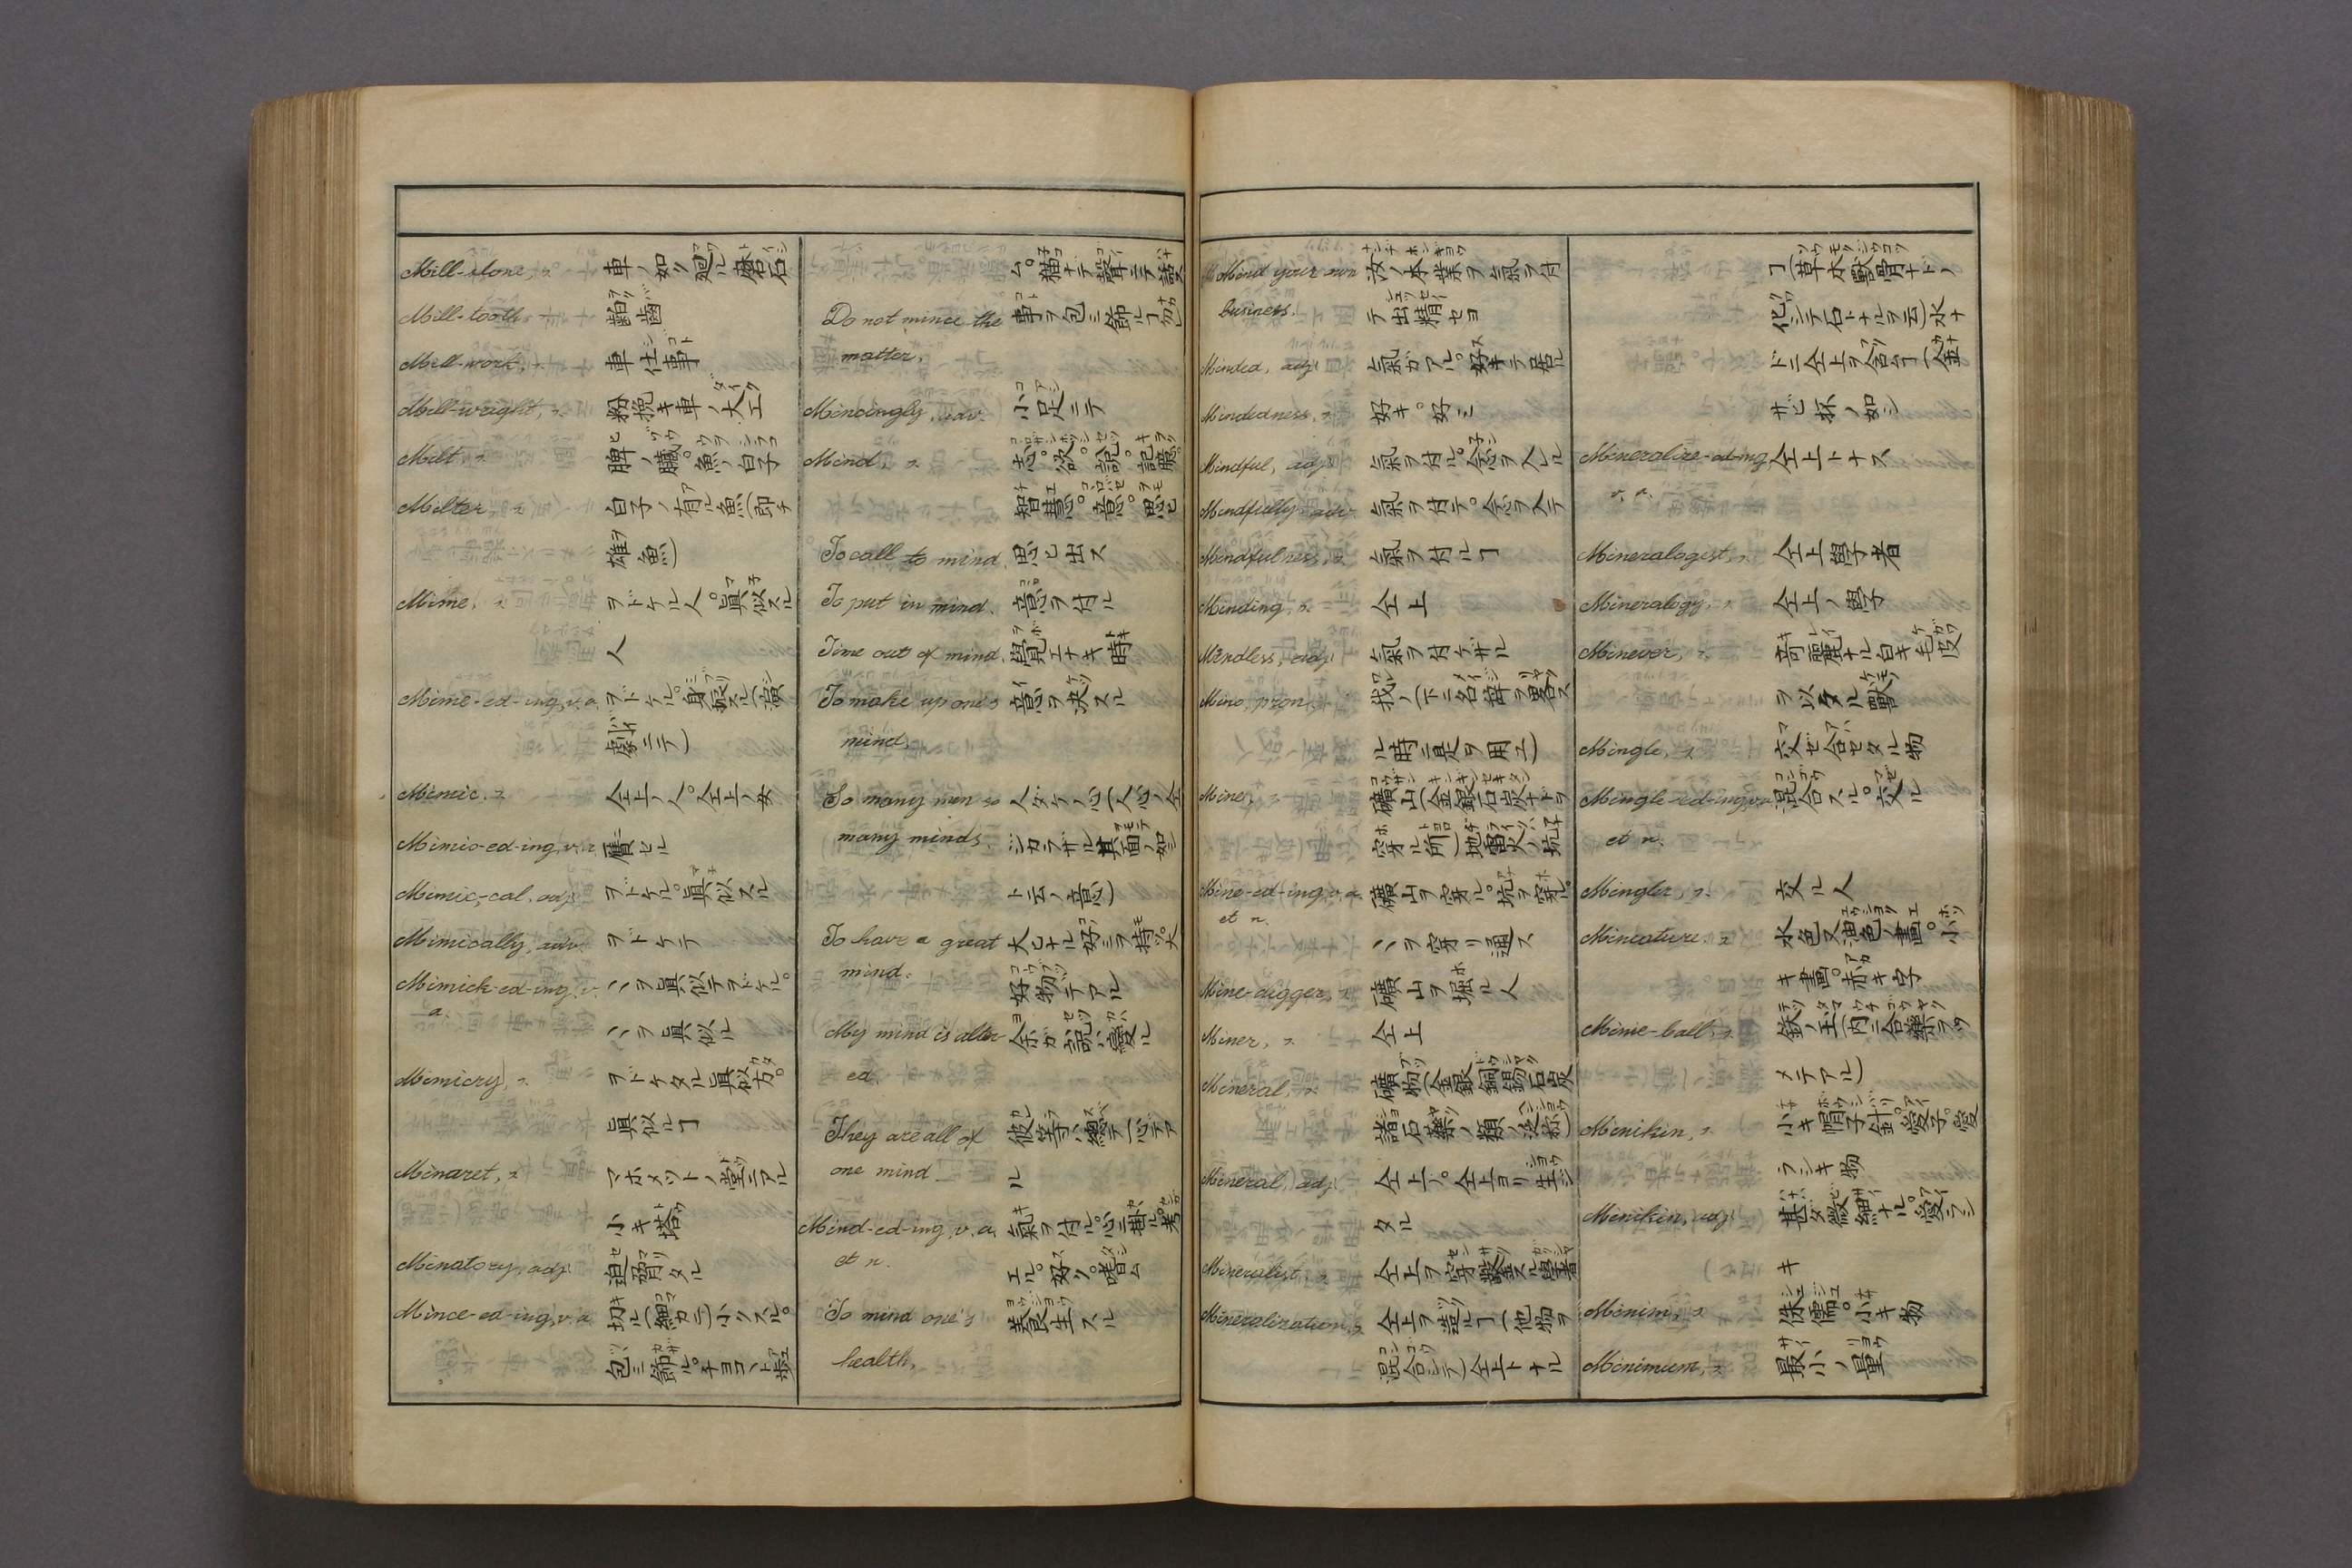 Mill-stone, n. 車ノ如ク廻ル磨石
Mill-tooth, n. 齠齒
Mill-work, n. 車仕事
Mill-wright, n. 粉挽キ車ノ大工
Milt, n. 脾ノ臓。魚ノ白子
Milter, n. 白子ノ有ル魚(即チ
雄魚)
Mime, n. ヲドケル人。眞似スル
人
Mime-ed-ing, v. a. ヲドケル。身振スル(演
劇ニテ)
Mimic, n. 仝上ノ人。仝上ノ女
Mimic-ed-ing, v. a. 贋セル
Mimic,-cal, adj. ヲドケル。眞似スル
Mimically, adv. ヲドケテ
Mimick-ed-ing, v. 〵ヲ眞似テヲドケル。
a. 〵ヲ眞似ル
Mimicry, n. ヲドケタル眞似方。
眞似ルヿ
Minaret, n. マホメットノ堂ニアル
小キ塔
Minatory, adj. 迫脅タル
Mince-ed-ing, v. a. 切ル(細カニ)小クスル。
包ミ飾ル。チヨコ〵ト歩
ム。
Do not mince the 事ヲ包ミ飾ルヿ勿レ
matter.
Mincingly, adv. 小足ニテ
Mind, n. 志。欲。説。記臆。
智慧。意。思ヒ
To call to mind. 思ヒ出ス
To put in mind. 意ヲ付ル
Time out of mind. 覺エナキ時
To make up one's 意ヲ決スル
mind.
So many men so 人ダケノ心(人心ノ仝
many minds. ジカラザル其面ノ如シ
ト云ノ意)
To have a great 大ヒナル好ミヲ持ツ。大
mind. 好物デアル
My mind is alter- 余ガ説ハ變ル
ed.
They are all of 彼等ハ總テ一心デア
one mind. ル
Mind-ed-ing, v. a. 氣ヲ付ル。心ニ掛ル。考
et n. エル。好ク。嗜ム
To mind one's 養生スル
health.
Mind your own 汝ノ本業ヲ氣ヲ付
business. テ出精セヨ
Minded, adj. 氣ガアル。好キテ居ル
Mindedness, n. 好キ。好ミ
Mindful, adj. 氣ヲ付ル。念ヲ入ル
Mindfully, adv. 氣ヲ付テ。念ヲ入テ
Mindfulness, n. 氣ヲ付ルヿ
Minding, n. 仝上
Mindless, adj. 氣ヲ付ケザル
Mine, pron. 我ノ(下ニ名辞ヲ畧ス
ル時ニ是ヲ用ユ)
Mine, n. 礦山(金銀石炭ナドヲ
穿ル所)地雷火ノ坑
Mine-ed-ing, v. a. 礦山ヲ穿ル。坑ヲ穿ル。
et n. 〵ヲ穿リ通ス
Mine-digger, n. 礦山ヲ堀ル人
Miner, n. 仝上
Mineral, n. 礦物(金銀銅錫石炭
諸石藥ノ類ノ汲称)
Mineral, adj. 仝上ノ。仝上ヨリ生ジ
タル
Mineralist, n. 仝上ヲ穿鑿スル學者
Mineralization, n. 仝上ヲ造ルヿ(他物ヲ
混合シテ)仝上トナル
ヿ(草木獸骨ナドノ
化シテ石トナルヲ云)水ナ
ドニ仝上ヲ含ヿ(金
サビ抔ノ如シ
Mineralize-ed-ing, 仝上トナス
v. a.
Mineralogist, n. 仝上學者
Mineralogy, n. 仝上ノ學
Minever, n. 奇麗ナル白キ毛皮
ヲ以タル獸
Mingle, n. 交ゼ合セタル物
Mingle-ed-ing, v. a. 混合スル。交ル
et n.
Mingler, n. 交ル人
Mineature, n. 水色又油色ノ畫。小
キ畫。赤キ字
Mime-ball, n. 鉄ノ玉(内ニ合藥ヲツ
メテアル)
Minikin, n. 小キ帽子針。愛子。愛
ラシキ物
Minikin, adj. 甚タ微細ナル。愛ラシ
キ
Minim, n. 侏儒。小キ物
Minimum, n. 最小ノ量